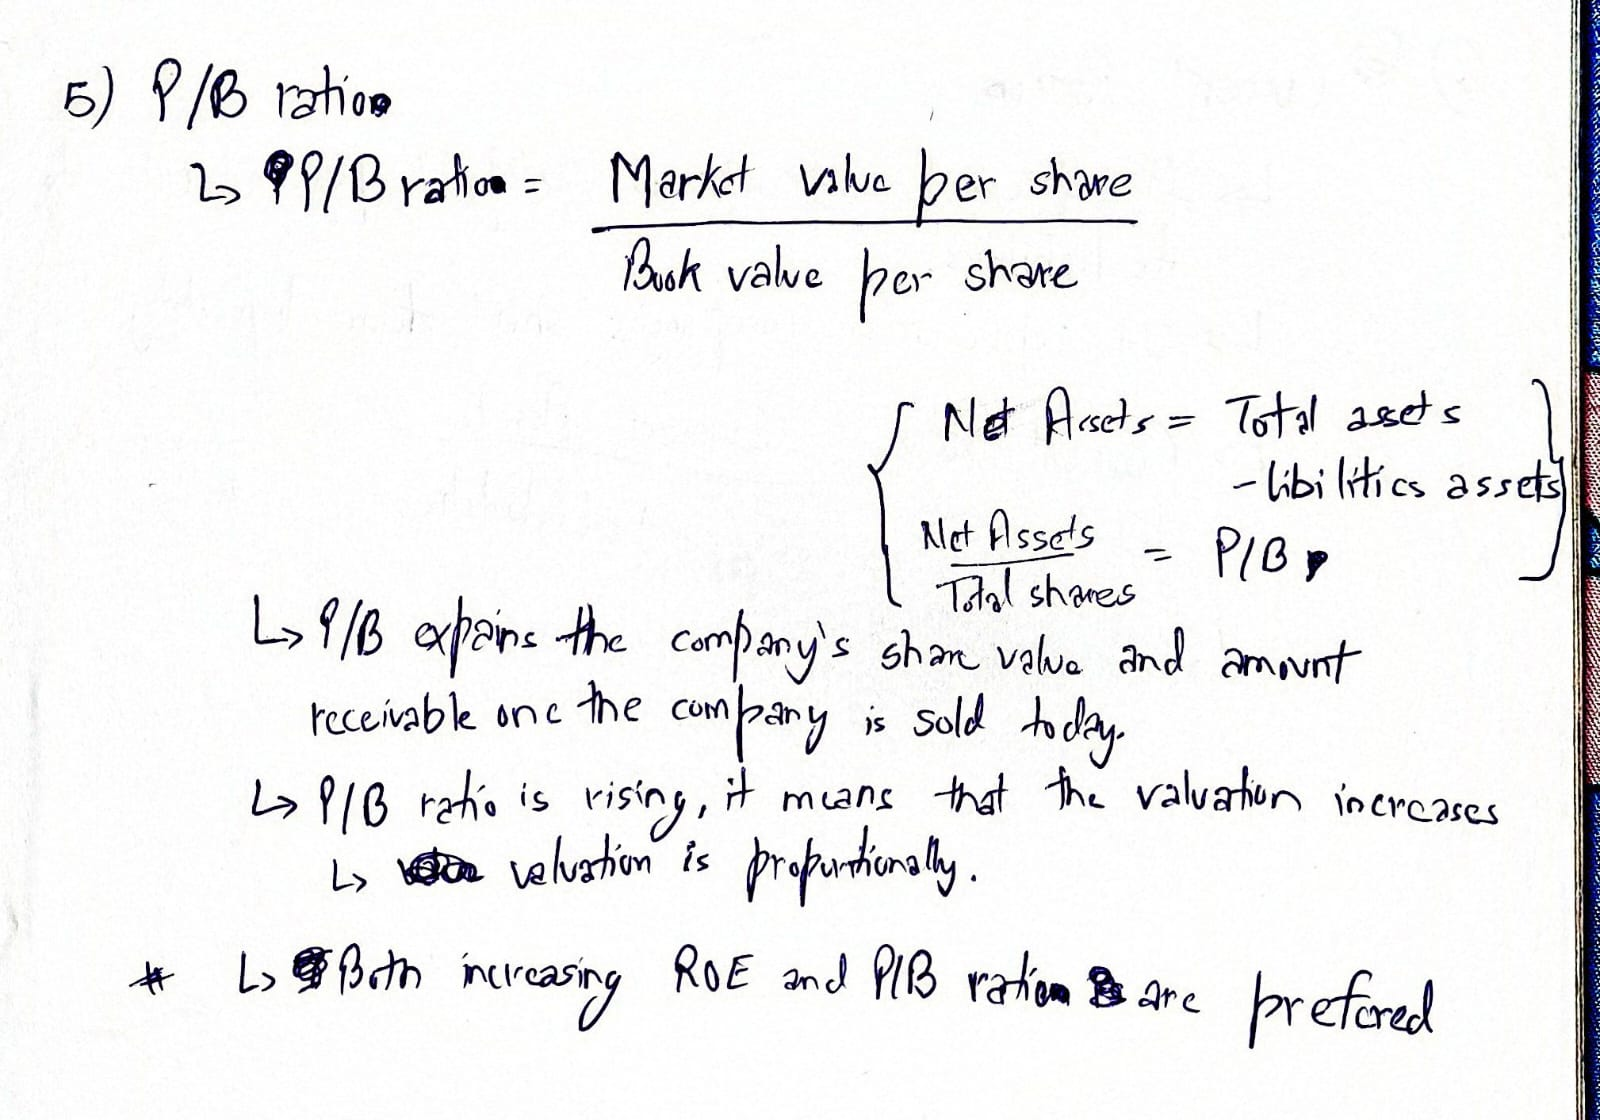 5) P/B ratio
↳ P/B ratio = Market value per share
Book value per share
{ Net Assets = Total assets
- libilitics assets }
Net Assets = P/B
Total shares
↳ P/B expains the company's share value and amount
receivable one the company is sold today.
↳ P/B ratio is rising, it means that the valuation increases
↳ valuation is proportionally.
* ↳ Both increasing ROE and P/B ratio are prefered